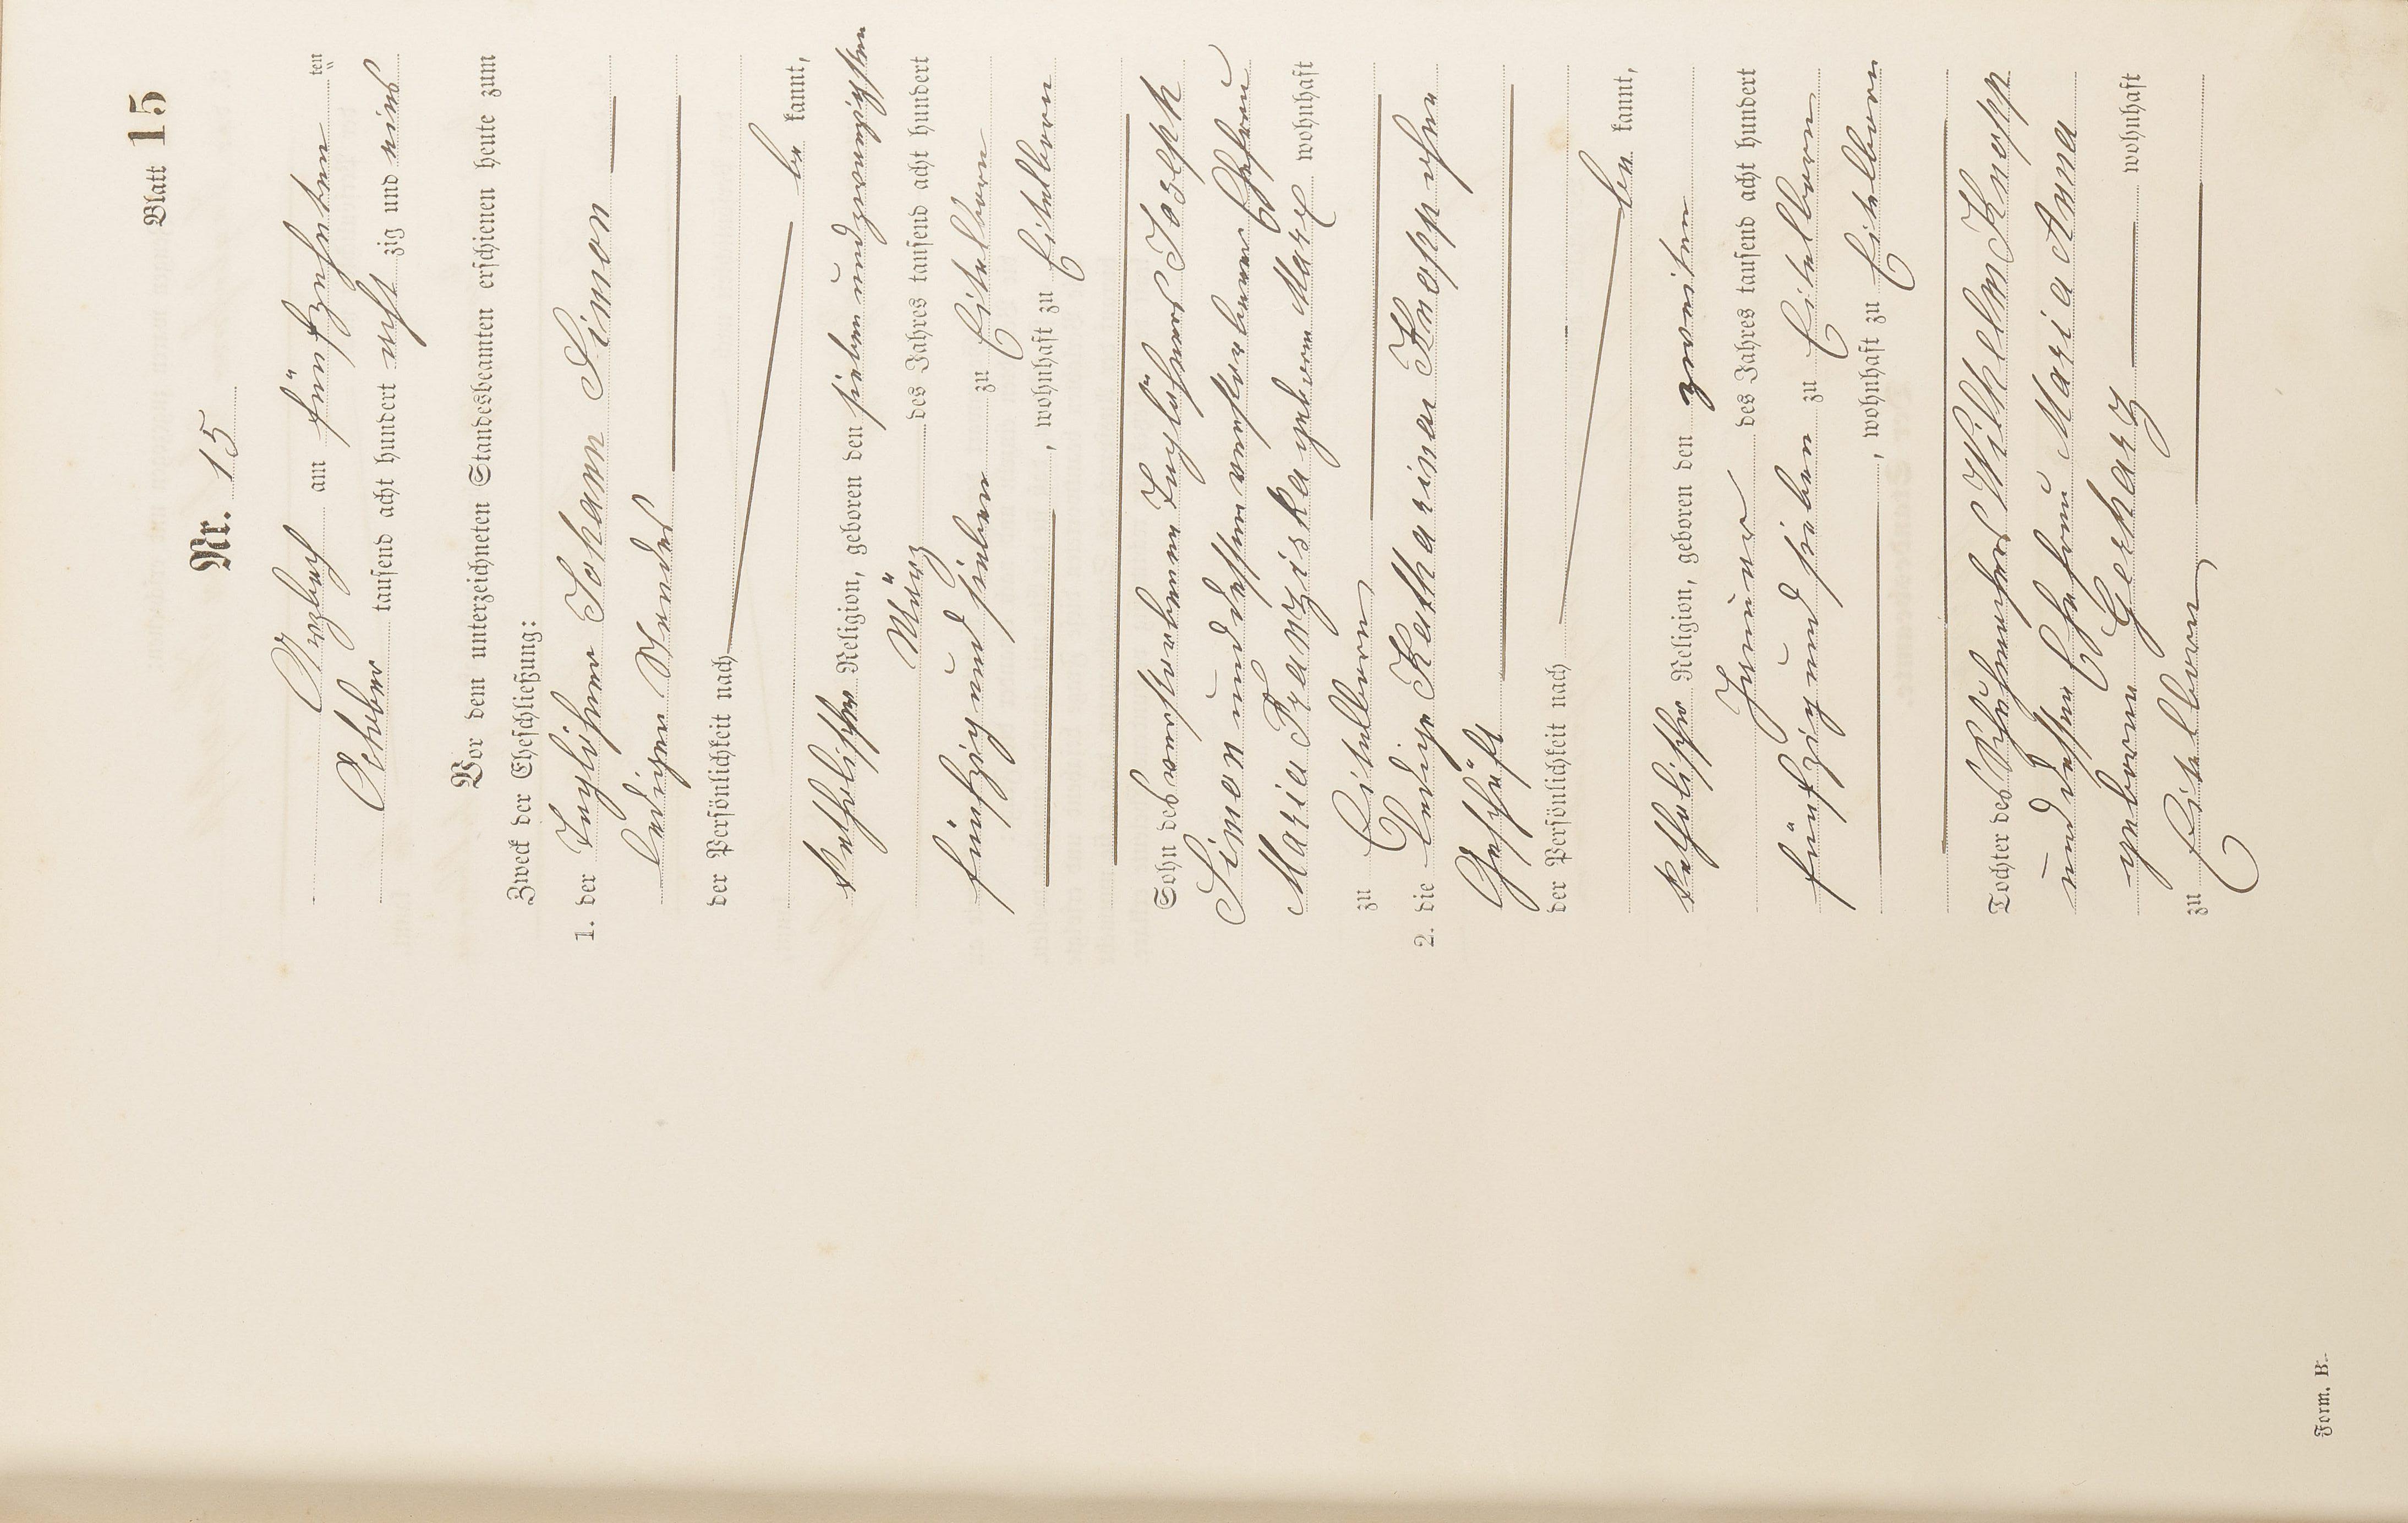 Blatt 15
Nr. 15
Arzbach am fünfzehnten ten
October tausend acht hundert acht zig und eins
Vor dem unterzeichneten Standesbeamten erschienen heute zum
Zweck der Eheschließung:
1. der Taglöhner Johann Simon
ledigen Standes
der Persönlichkeit nach
be kannt,
katholischer Religion, geboren den sieben und zwanzigsten
März des Jahres tausend acht hundert
fünfzig und sieben zu Eitelborn
, wohnhaft zu Eitelborn
Sohn des verstorbenen Taglöhners Joseph
Simon und dessen verstorbenen Ehefrau
Maria Franziska geboren Marx wohnhaft
zu Eitelborn
2. die ledige Katharina Knopp ohne
Geschäft
der Persönlichkeit nach
be kannt,
katholischer Religion, geboren den zweiten
Januar des Jahres tausend acht hundert
fünfzig und sieben zu Eitelborn
, wohnhaft zu Eitelborn
Tochter des Wilhelm Knopp
und dessen Ehefrau Maria Anna
geboren Gerharz wohnhaft
zu Eitelborn
Form. B.